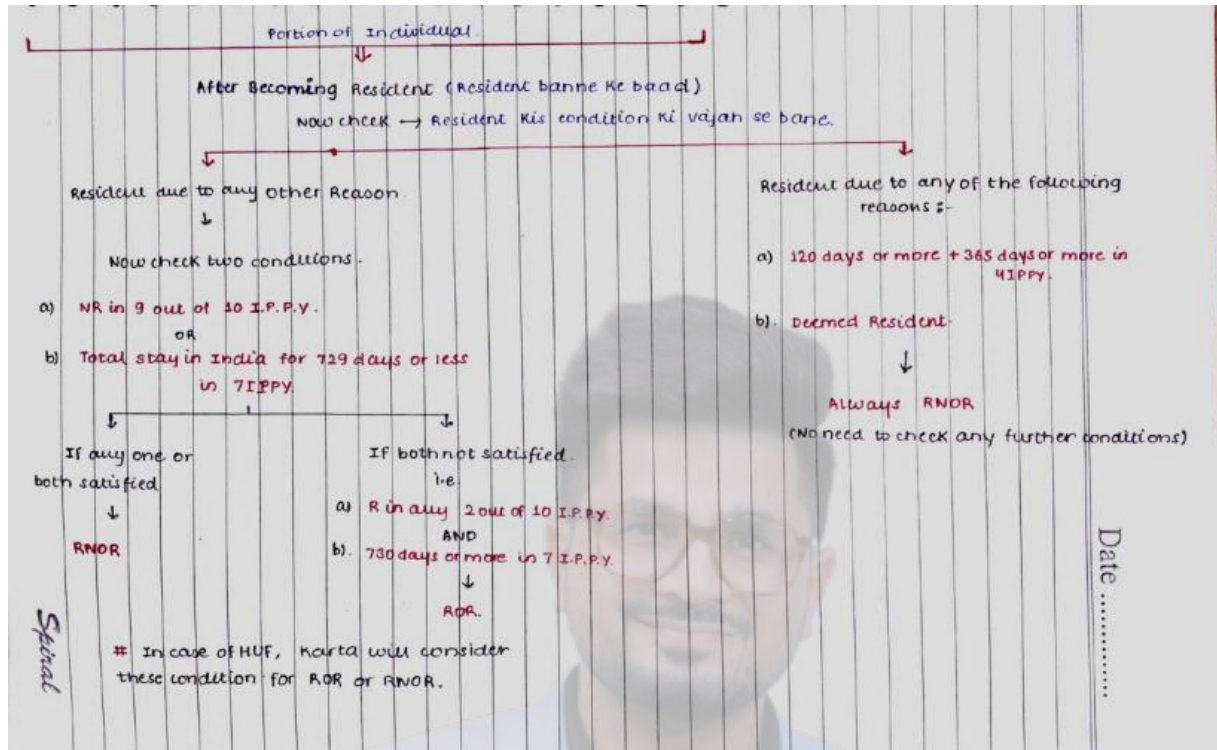 Portion of Individual.
After Becoming Resident (Resident banne ke baad)
Now check → Resident kis condition ki vajah se bane.
Resident due to any other Reason.
Now check two conditions.
a) NR in 9 out of 10 I.P.P.Y.
OR
b) Total stay in India for 729 days or less
in 7IPPY.
If any one or
both satisfied
RNOR
If both not satisfied.
i.e
a) R in any 2 out of 10 I.P.P.Y.
AND
b). 730 days or more in 7 I.P.P.Y.
ROR.
# In case of HUF, Karta will consider
these condition for ROR or RNOR.
Resident due to any of the following
reasons :-
a) 120 days or more + 365 days or more in
4IPPY.
b). Deemed Resident.
Always RNOR
(No need to check any further conditions)
Date ..............
Spiral